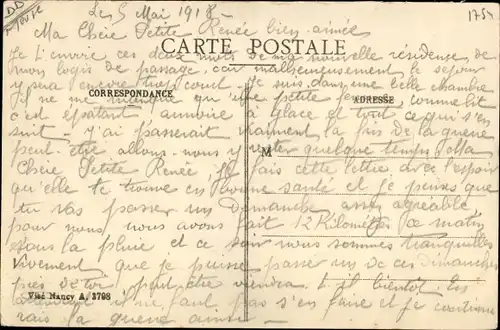 DD
1758
Le 5 Mai 1918
Ma Chère Petite Renée bien aimée
CARTE POSTALE
Je t'envoie ces deux mots de ma nouvelle résidence, de
mon logis de passage, car malheureusement le séjour
y sera encore court. Je suis dans une belle chambre
CORRESPONDANCE
ADRESSE
Il ne me manque qu'une petite
c'est épatant, armoire à glace et tout ce qui s'en
suit - j'ai passerait vraiment la fin de la guerre
peut-être allons-nous y rester quelque temps. Ma
M
Chère Petite Renée, je fais cette lettre avec l'espoir
qu'elle te trouve en bonne santé et je pense que
tu vas passer un Dimanche assez agréable
pour nous, nous avons fait 12 Kilomètres ce matin
sous la pluie et ce soir nous sommes tranquilles
Vivement que je puisse passer un de ces dimanches
près de toi peut être viendra t-il bientôt. En
Visé Nancy A. 3798
attendant il ne faut pas s'en faire et je continue
la guerre ainsi